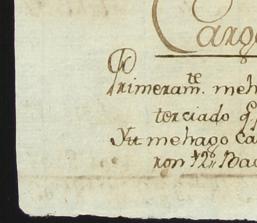 Cargo
Primeram.te meh
terciado q
Yt mehago Ca
ron